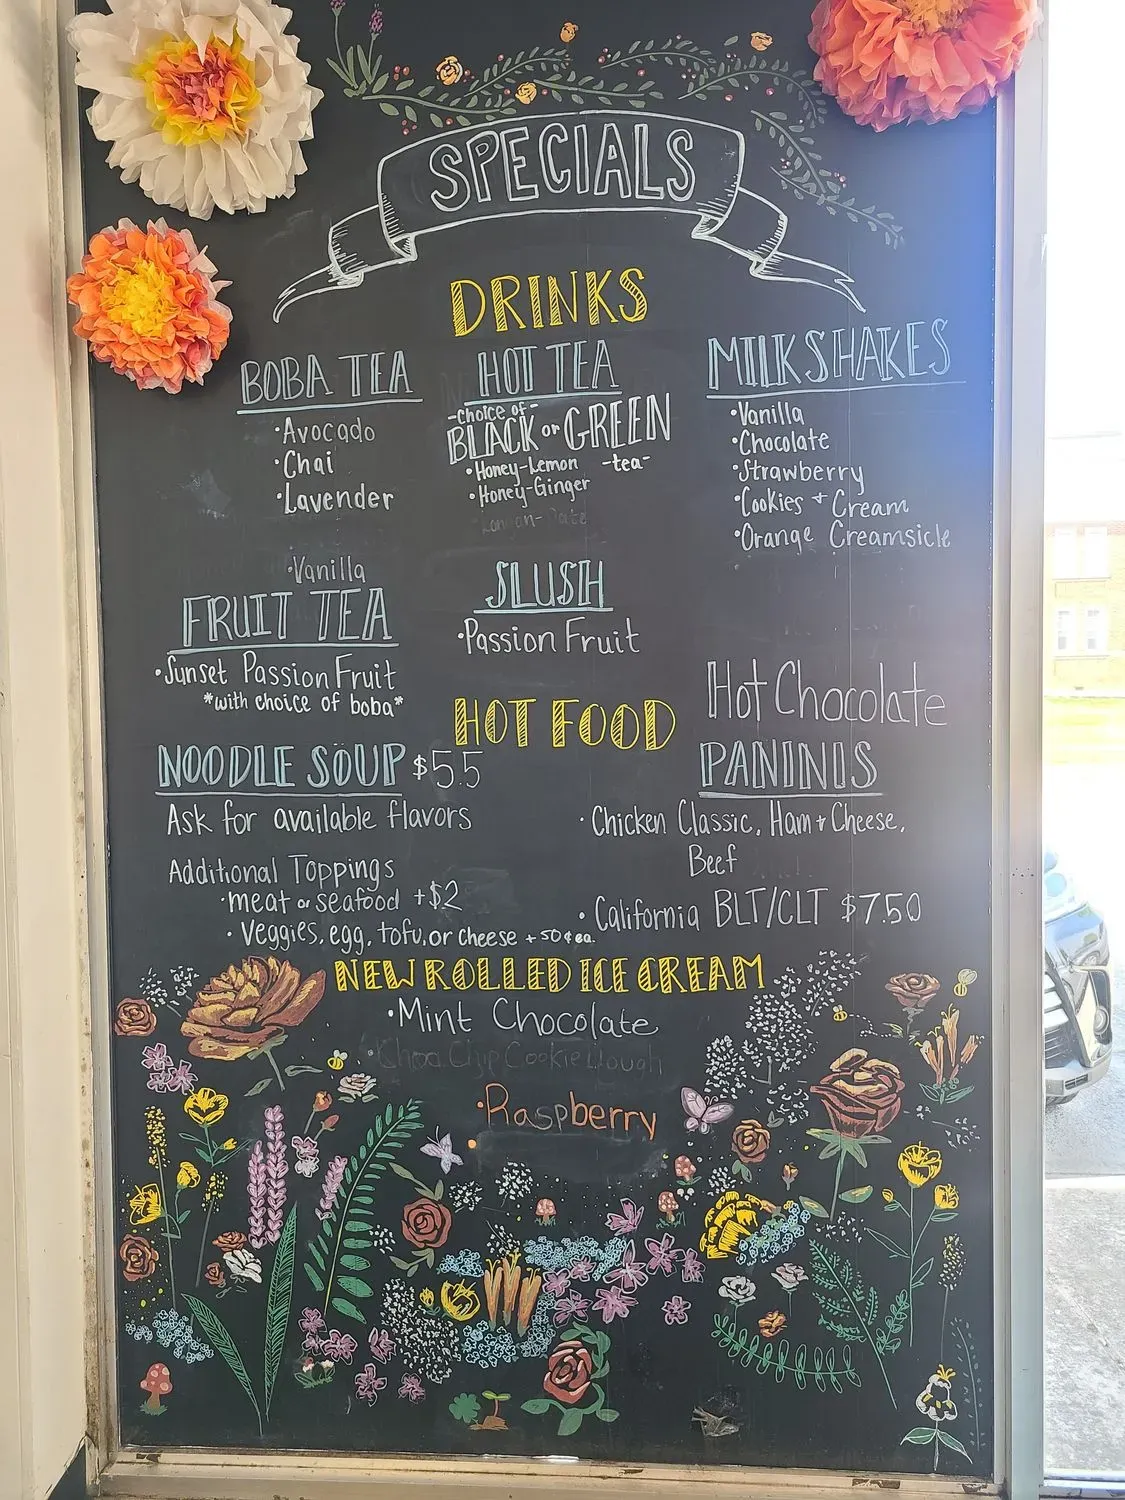 SPECIALS
DRINKS
BOBA TEA
•Avocado
•Chai
•Lavender
•Vanilla
HOT TEA
-choice of-
BLACK or GREEN
-tea-
•Honey-Lemon
•Honey-Ginger
MILKSHAKES
•Vanilla
•Chocolate
•Strawberry
•Cookies + Cream
•Orange Creamsicle
FRUIT TEA
•Sunset Passion Fruit
*with choice of boba*
SLUSH
•Passion Fruit
Hot Chocolate
HOT FOOD
NOODLE SOUP $5.5
Ask for available flavors
Additional Toppings
•meat or seafood +$2
•Veggies, egg, tofu, or cheese + 50¢ ea.
PANINIS
•Chicken Classic, Ham + Cheese,
Beef
•California BLT/CLT $7.50
NEW ROLLED ICE CREAM
•Mint Chocolate
Chip Cookie Dough
•Raspberry